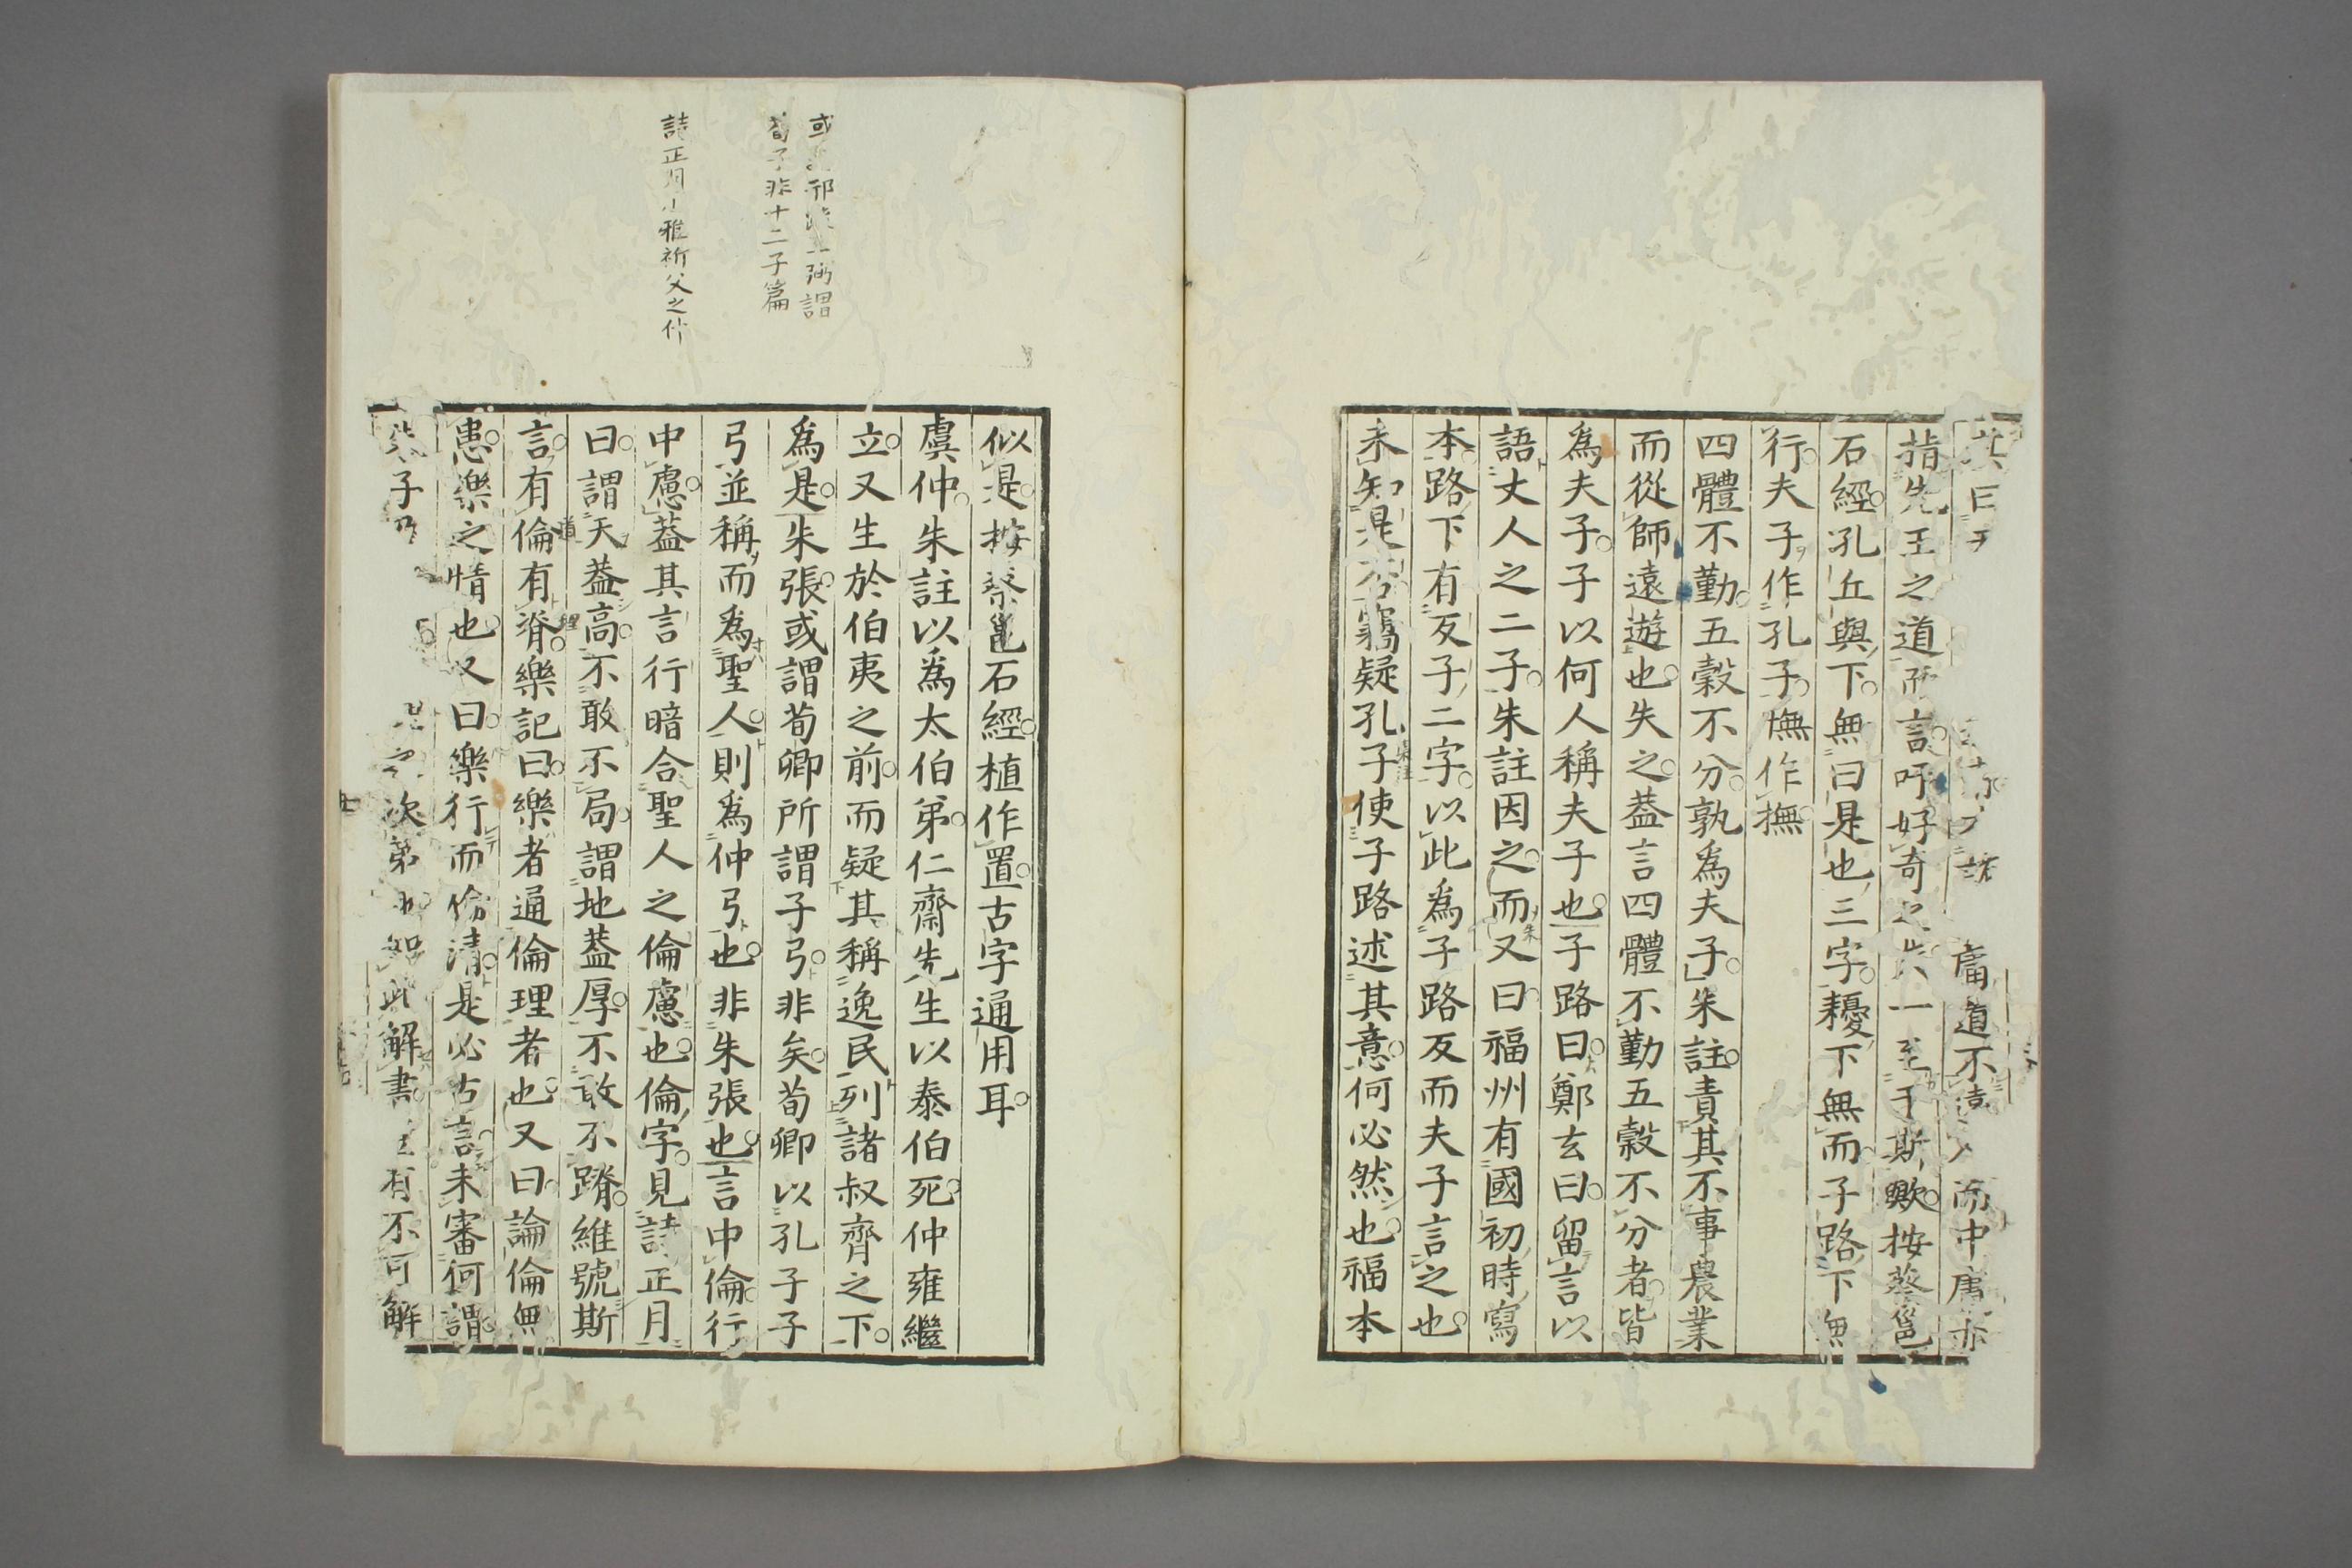 曰 庸道不遠人而中庸亦
指先王之道而言吁好奇之失一至于斯歟按蔡邕
石經孔丘與下無曰是也三字耰下無而子路下無
行夫子作孔子憮作撫
四體不勤五穀不分孰為夫子朱註責其不事農業
而從師遠遊也失之蓋言四體不勤五穀不分者皆
為夫子子以何人稱夫子也子路曰鄭玄曰留言以
語丈人之二子朱註因之而又曰福州有國初時寫
本路下有反子二字以此為子路反而夫子言之也
未知是否竊疑孔子使子路述其意何必然也福本
似是按蔡邕石經植作置古字通用耳
虞仲朱註以為太伯弟仁齋先生以泰伯死仲雍繼
立又生於伯夷之前而疑其稱逸民列諸叔齊之下
為是朱張或謂荀卿所謂子弓非矣荀卿以孔子子
弓並稱而為聖人則為仲弓也非朱張也言中倫行
中慮蓋其言行暗合聖人之倫慮也倫字見詩正月
曰謂天蓋高不敢不局謂地蓋厚不敢不蹐維號斯
言有倫有脊樂記曰樂者通倫理者也又曰論倫無
患樂之情也又曰樂行而倫清是必古言未審何謂
子 次第也如此解書 有不可解
或 邢 王弼謂
荀子非十二子篇
詩正月小雅祈父之什